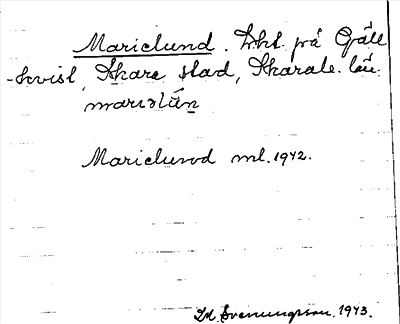 Marielund. Lht på Gäll
-kvist, Skara stad, Skarab. län.
marɩəlún
Marielund ml. 1942.
Id. Svenungsson. 1943.